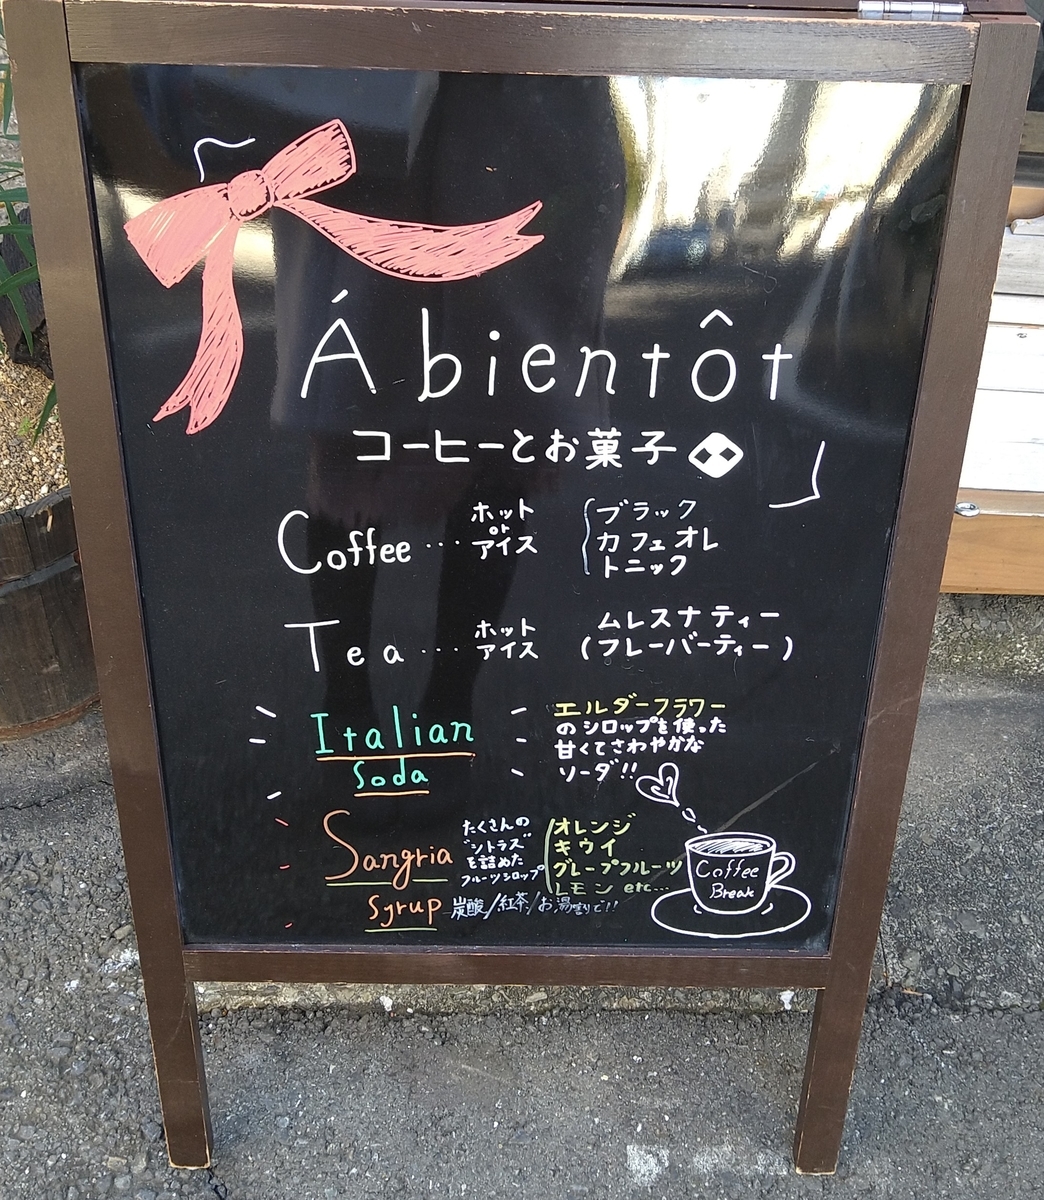 Á bientôt
コーヒーとお菓子
Coffee … ホット or アイス
ブラック
カフェオレ
トニック
Tea … ホット アイス
ムレスナティー
(フレーバーティー)
Italian
Soda
エルダーフラワー
のシロップを使った
甘くてさわやかな
ソーダ!!
Sangria
Syrup
たくさんの
"シトラス"
を詰めた
フルーツシロップ
オレンジ
キウイ
グレープフルーツ
レモン etc…
炭酸/紅茶/お湯割りで!!
Coffee
Break